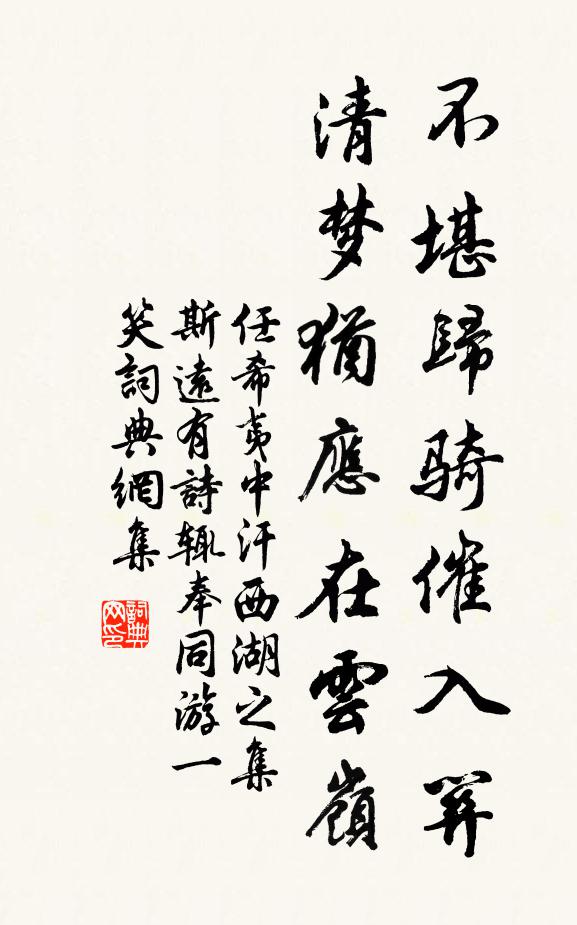 不堪歸騎催入關
清梦猶應在雲嶺
任希夷中汗西湖之集
斯遠有詩輒奉同游一
笑詞典網集
詞典
网印